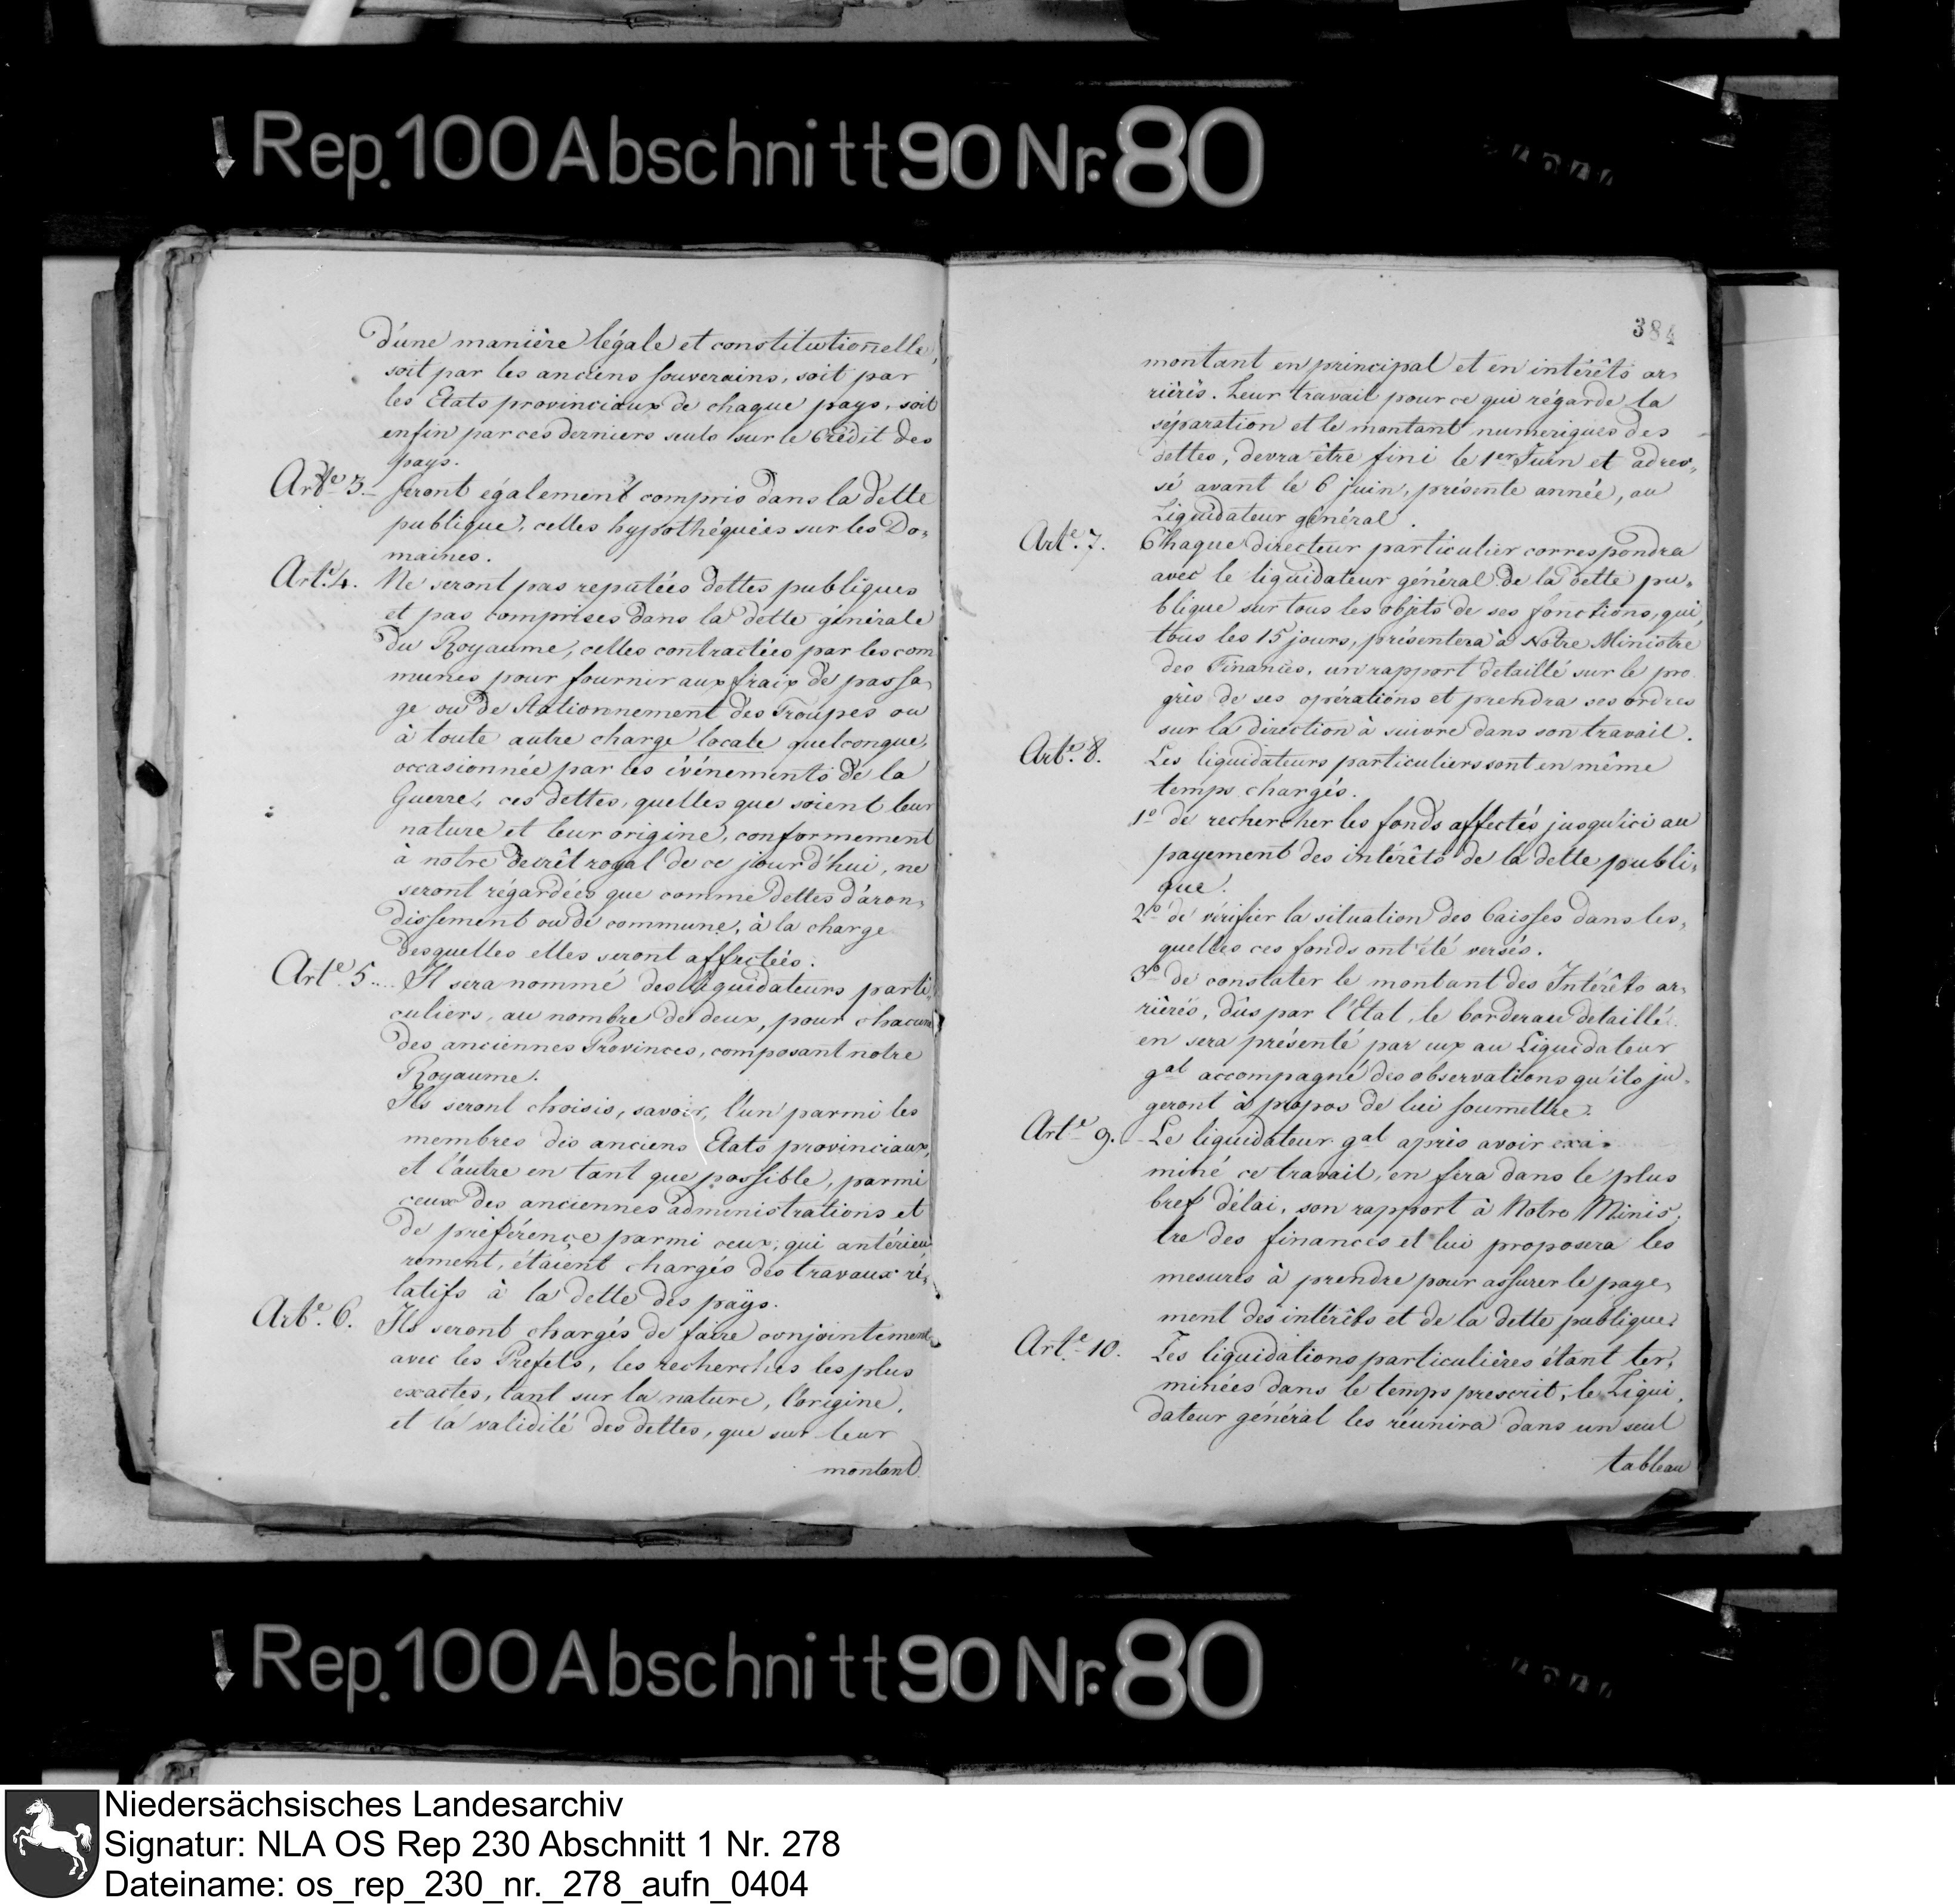 Rep. 100 Abschnitt 90 Nr. 80
d'une manière légale et constitutionelle,
soit par les anciens souverains, soit par
les Etats provinciaux de chaque pays, soit
enfin par ces derniers seuls sur le Crédit des
pays.
Arte 3. Seront également compris dans la dette
publique, celles hypothéquées sur les Do=
maines.
Arte. 4. Ne seront pas reputées dettes publiques
et pas comprises dans la dette générale
du Royaume, celles contractées par les com
munes pour fournir aux fraix de passa=
ge ou de stationnement des Troupes ou
à toute autre charge locale quelconque,
occasionnée par les événements de la
Guerre, ces dettes, quelles que soient leur
nature et leur origine, conformement
à notre decrêt royal de ce jourd'hui, ne
seront régardées que comme dettes d'áron=
dissement ou de commune, à la charge
desquelles elles seront affectées.
Arte. 5. Il sera nommé des liquidateurs parti
culiers, au nombre de deux, pour chacune
des anciennes Provinces, composant notre
Royaume.
Ils seront choisis, savoir, l'un parmi les
membres des anciens Etats provinciaux,
et l'autre en tant que possible, parmi
ceux des anciennes administrations et
de préférence parmi ceux, qui antérieu
rement, étaient chargés des travaux ré=
latifs à la dette des pays.
Arte. 6. Ils seront chargés de faire conjointement
avec les Prefets, les recherches les plus
exactes, tant sur la nature, l'origine,
et la validité des dettes, que sur leur
montant
384
montant en principal et en intérêts ar=
riérés. Leur travail pour ce qui régarde la
séparation et le montant numeriques des
dettes, devra être fini le 1er Juin et adres=
sé avant le 6 juin, présente année, au
Liquidateur général.
Arte. 7. Chaque directeur particulier correspondra
avec le liquidateur général de la dette pu=
blique sur tous les objets de ses fonctions, qui,
tous les 15 jours, présentera à Notre Ministre
des Finances, un rapport detaillé sur le pro
grès de ses opérations et prendra ses ordres
sur la direction à suivre dans son travail.
Arte. 8. Les liquidateurs particuliers sont en même
temps chargés.
1o de rechercher les fonds affectés jusqu'ici au
payement des intérêts de la dette publi=
que.
2o de vérifier la situation des Caisses dans les=
quelles ces fonds ont été versés.
3o de constater le montant des Intérêts ar=
riérés, dûs par l'Etat, le bordereau detaillé
en sera présenté par eux au Liquidateur
gal accompagné des observations qu'ils ju=
geront à propos de lui soumettre.
Arte 9. Le liquidateur gal après avoir exa=
miné ce travail, en fera dans le plus
bref délai, son rapport à Notre Minis=
tre des finances et lui proposera les
mesures à prendre pour assurer le paye=
ment des intérêts et de la dette publique.
Arte. 10. Les liquidations particulières étant ter=
minées dans le temps prescrit, le Liqui=
dateur général les réunira dans un seul
tableau
Rep. 100 Abschnitt 90 Nr. 80
Niedersächsisches Landesarchiv
Signatur: NLA OS Rep 230 Abschnitt 1 Nr. 278
Dateiname: os_rep_230_nr._278_aufn_0404